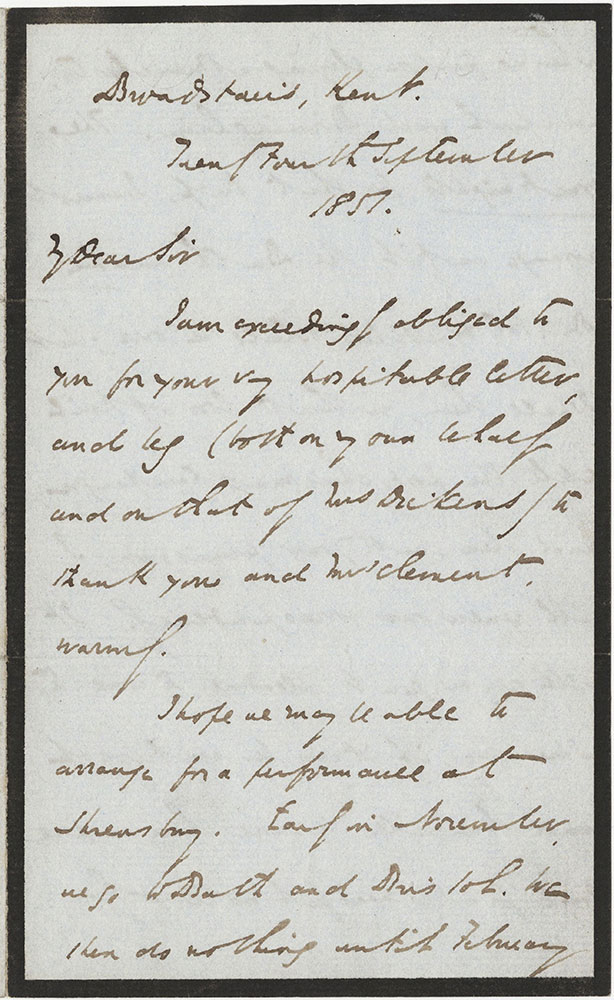 Broadstairs, Kent.
Twenty Fourth September
1851.
My Dear Sir
I am exceedingly obliged to
you for your very hospitable letter,
and beg (both on my own behalf
and on that of Mrs Dickens) to
thank you and Mrs Clement,
warmly.
I hope we may be able to
arrange for a performance at
Shrewsbury. Early in November
we go to Bath and Bristol. We
then do nothing until February